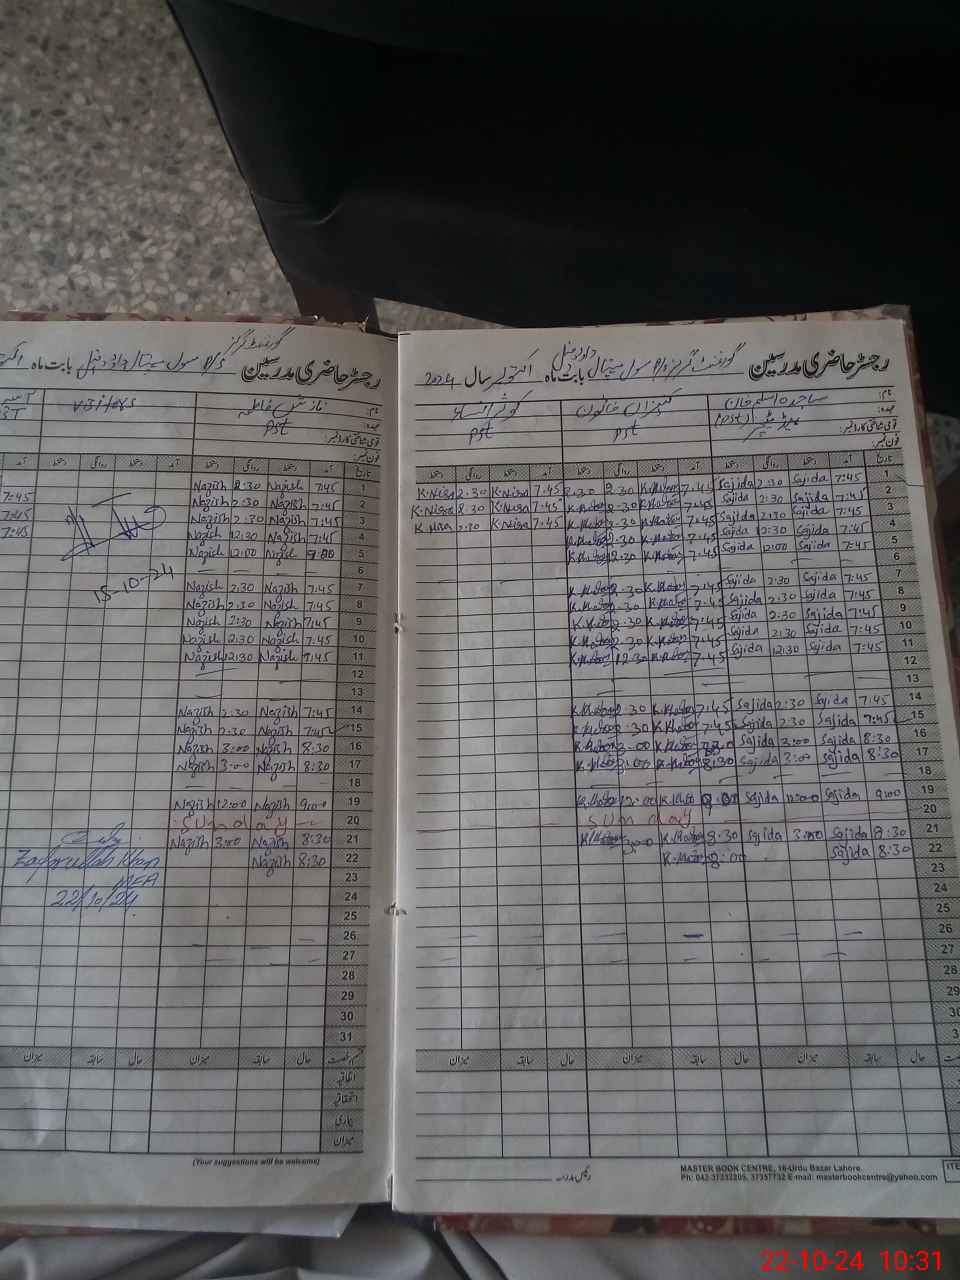 رجسٹر حاضری مدرسین
گورنمنٹ گرلز P/S سول ہسپتال داؤد خیل بابت ماہ اکتوبر سال 2024
نام: ساجدہ اسلم خان کنیزاں خاتون کوثر النساء
عہدہ: (PST) ہیڈ ٹیچر PST PST
قومی شناختی کارڈ نمبر:
فون نمبر:
تاریخ آمد دستخط روانگی دستخط آمد دستخط روانگی دستخط آمد دستخط روانگی دستخط
1 7:45 Sajida 2:30 Sajida 7:45 K.Khatoon 2:30 7:45 K.Nisa 2:30 K.Nisa
2 7:45 Sajida 2:30 Sajida 7:45 K.Khatoon 2:30 K.Khatoon 7:45 K.Nisa 2:30 K.Nisa
3 7:45 Sajida 2:30 Sajida 7:45 K.Khatoon 2:30 K.Khatoon 7:45 K.Nisa 2:30
4 7:45 Sajida 12:30 Sajida 7:45 K.Khatoon 2:30 K.Khatoon
5 7:45 Sajida 12:00 Sajida 7:45 K.Khatoon 2:30 K.Khatoon
6
7 7:45 Sajida 2:30 Sajida 7:45 K.Khatoon 2:30 K.Khatoon
8 7:45 Sajida 2:30 Sajida 7:45 K.Khatoon 2:30 K.Khatoon
9 7:45 Sajida 2:30 Sajida 7:45 K.Khatoon 2:30 K.Khatoon
10 7:45 Sajida 2:30 Sajida 7:45 K.Khatoon 2:30 K.Khatoon
11 7:45 Sajida 12:30 Sajida 7:45 K.Khatoon 12:30 K.Khatoon
12
13
14 7:45 Sajida 2:30 Sajida 7:45 K.Khatoon 2:30 K.Khatoon
15 7:45 Sajida 2:30 Sajida 7:45 K.Khatoon 2:30 K.Khatoon
16 8:30 Sajida 3:00 Sajida K.Khatoon 3:00 K.Khatoon
17 8:30 Sajida 3:00 Sajida 8:30 K.Khatoon 3:00 K.Khatoon
18
19 9:00 Sajida 12:00 Sajida 9:00 K.Khatoon 12:00 K.Khatoon
20 Sunday
21 8:30 Sajida 3:00 Sajida 8:30 K.Khatoon 3:00 K.Khatoon
22 8:30 Sajida 8:00 K.Khatoon
23
24
25
26
27
28
29
30
31
حال سابقہ میزان حال سابقہ میزان حال سابقہ میزان
رئیس مدرسہ
MASTER BOOK CENTRE, 16-Urdu Bazar Lahore.
Ph: 042-37232205, 37357732 E-mail: masterbookcentre@yahoo.com
ITE
رجسٹر حاضری مدرسین
گورنمنٹ گرلز P/S سول ہسپتال داؤد خیل بابت ماہ
نام: نازش فاطمہ
عہدہ: PST
قومی شناختی کارڈ نمبر:
فون نمبر:
تاریخ آمد دستخط روانگی دستخط آمد دستخط روانگی دستخط آمد
1 7:45 Nazish 2:30 Nazish 7:45
2 7:45 Nazish 2:30 Nazish 7:45
3 7:45 Nazish 2:30 Nazish 7:45
4 7:45 Nazish 12:30 Nazish
5 9:00 Nazish 12:00 Nazish
6
7 7:45 Nazish 2:30 Nazish
8 7:45 Nazish 2:30 Nazish
9 7:45 Nazish 2:30 Nazish
10 7:45 Nazish 2:30 Nazish
11 7:45 Nazish 12:30 Nazish
12
13
14 7:45 Nazish 2:30 Nazish
15 7:45 Nazish 2:30 Nazish
16 8:30 Nazish 3:00 Nazish
17 8:30 Nazish 3:00 Nazish
18
19 9:00 Nazish 12:00 Nazish
20 Sunday
21 8:30 Nazish 3:00 Nazish
22 8:30 Nazish
23
24
25
26
27
28
29
30
31
15-10-24
Zafarullah Khan
MEA
22/10/24
حال سابقہ میزان حال سابقہ میزان
اتفاقیہ
استحقاقیہ
بیماری
میزان
(Your suggestions will be welcome)
22-10-24 10:31